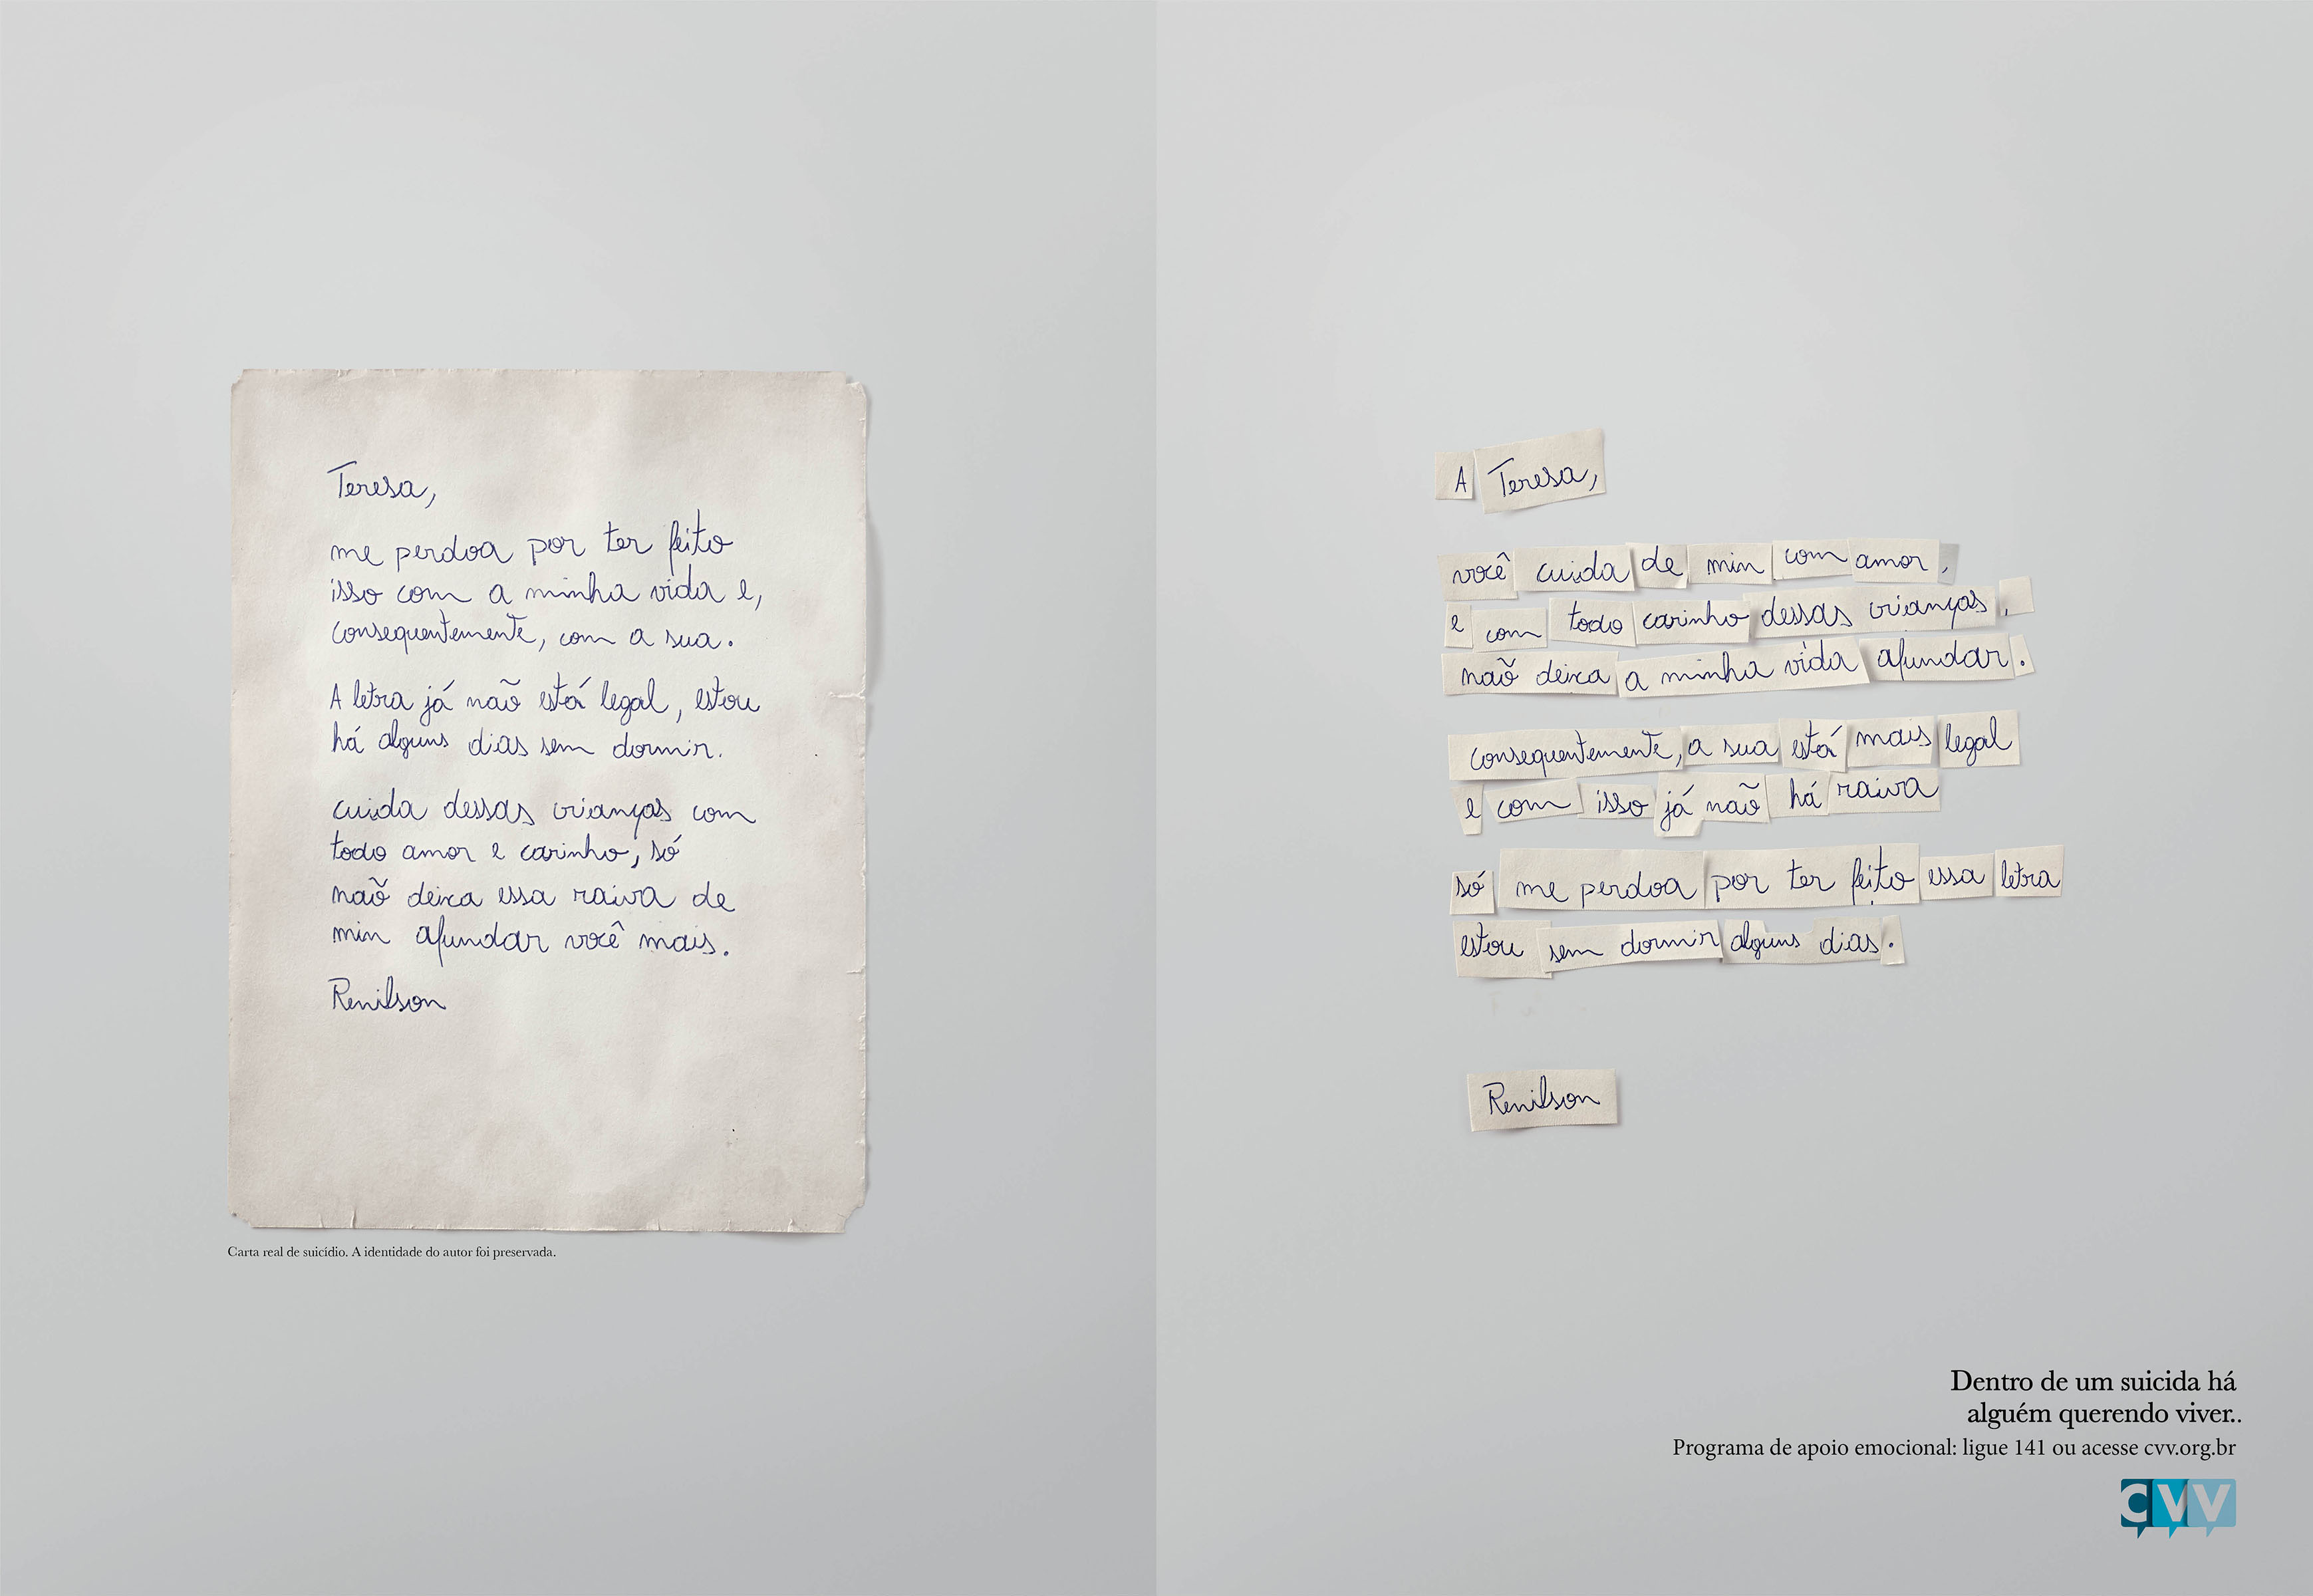 Teresa,
me perdoa por ter feito
isso com a minha vida e,
consequentemente, com a sua.
A letra já naõ está legal, estou
há alguns dias sem dormir.
cuida dessas crianças com
todo amor e carinho, só
naõ deixa essa raiva de
min afundar você mais.
Renilson
Carta real de suicídio. A identidade do autor foi preservada.
A Teresa,
você cuida de min com amor,
e com todo carinho dessas crianças,
naõ deixa a minha vida afundar.
consequentemente, a sua está mais legal
e com isso já naõ há raiva
só me perdoa por ter feito essa letra
estou sem dormir alguns dias.
Renilson
Dentro de um suicida há
alguém querendo viver..
Programa de apoio emocional: ligue 141 ou acesse cvv.org.br
CVV